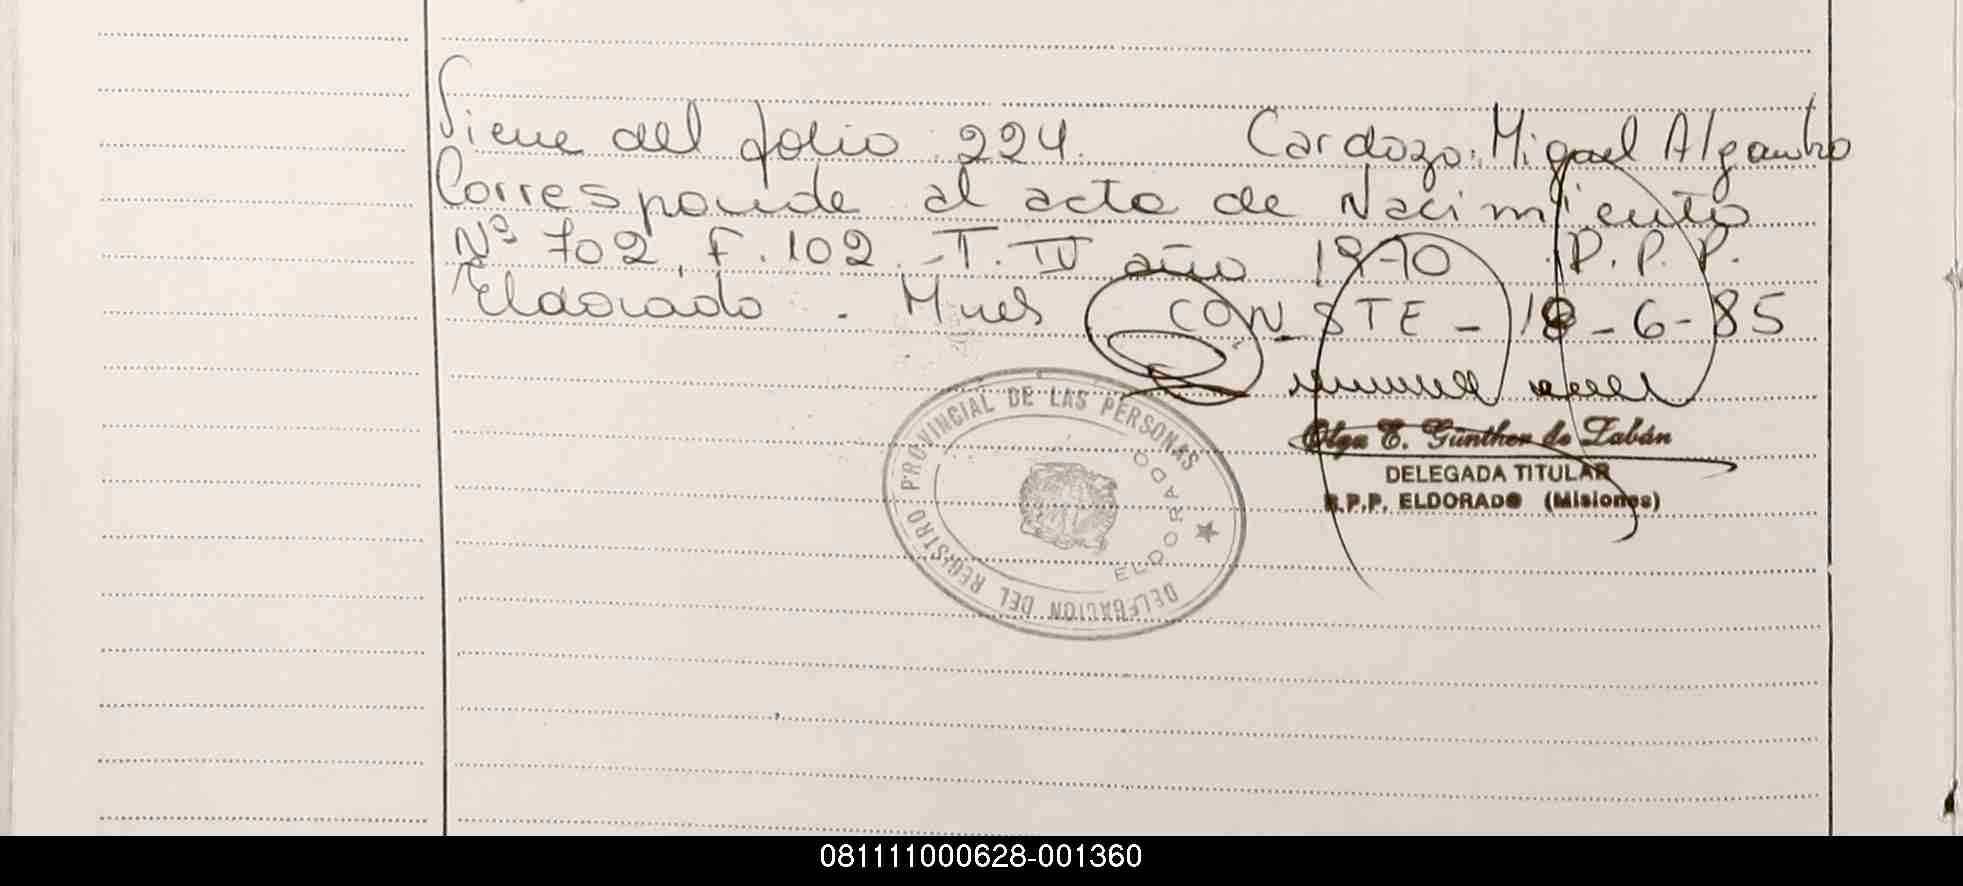 Viene del folio 224. Cardozo, Miguel Alejandro
Corresponde al acta de Nacimiento
Nº 702, F. 102. T. IV año 1970 . P. P. P.
Eldorado . Mnes CONSTE - 18-6-85
Olga E. Günther de Zabán
DELEGADA TITULAR
R.P.P. ELDORADO (Misiones)
DELEGACION DEL REGISTRO PROVINCIAL DE LAS PERSONAS
ELDORADO
081111000628-001360